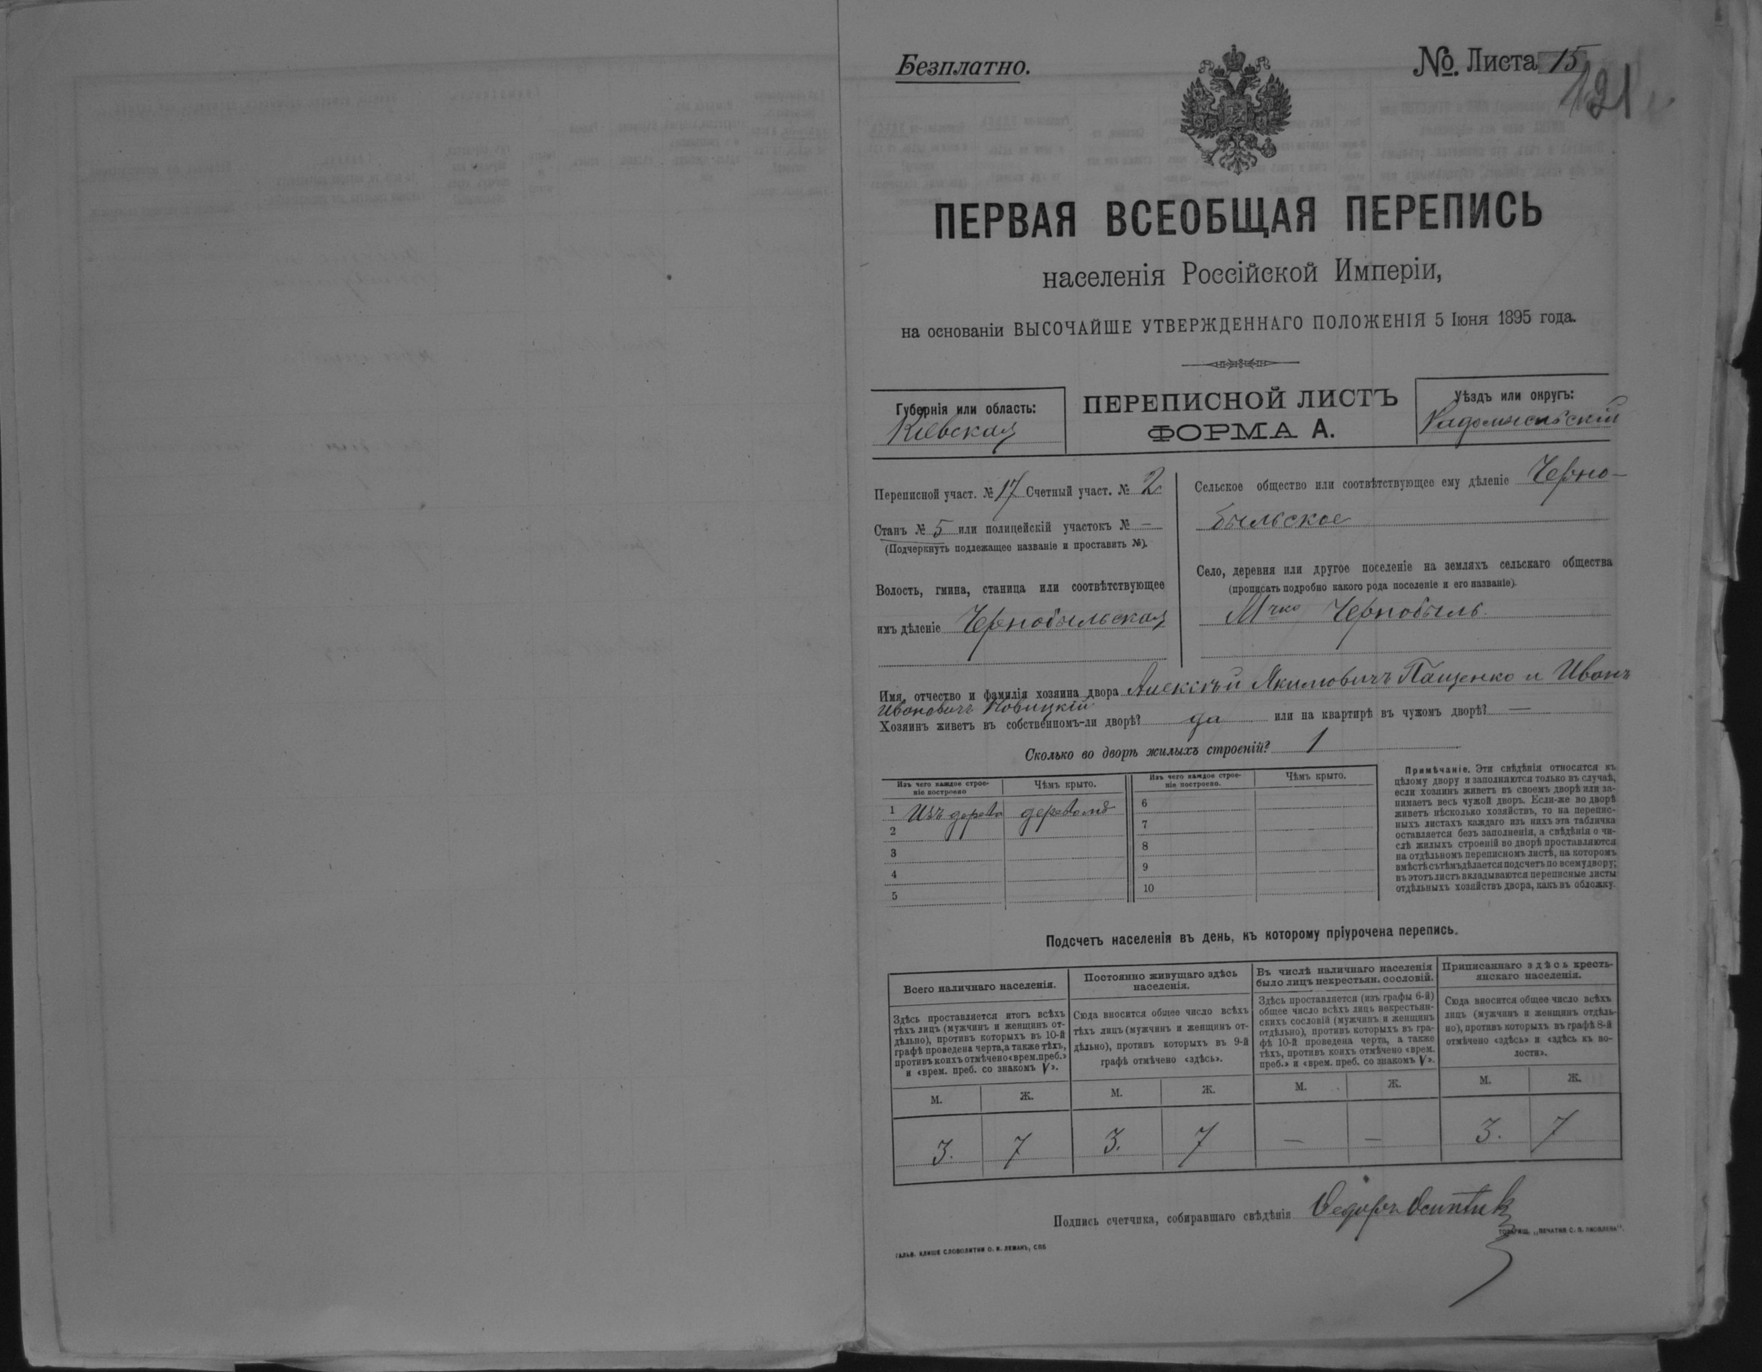 Безплатно.
№. Листа 15
121
ПЕРВАЯ ВСЕОБЩАЯ ПЕРЕПИСЬ
населенія Россійской Имперіи,
на основаніи ВЫСОЧАЙШЕ УТВЕРЖДЕННАГО ПОЛОЖЕНІЯ 5 Іюня 1895 года.
Губернія или область:
Кіевская
ПЕРЕПИСНОЙ ЛИСТЪ
ФОРМА А.
Уѣздъ или округъ:
Радомысльскій
Переписной участ. № 17 Счетный участ. № 2
Станъ № 5 или полицейскій участокъ № —
(Подчеркнуть подлежащее названіе и проставить №).
Волость, гмина, станица или соотвѣтствующее
имъ дѣленіе Чернобыльская
Сельское общество или соотвѣтствующее ему дѣленіе Черно-
быльское
Село, деревня или другое поселеніе на земляхъ сельскаго общества
(прописать подробно какого рода поселеніе и его названіе).
Мчко Чернобыль
Имя, отчество и фамилія хозяина двора Алексѣй Якимовичъ Пащенко и Иванъ
Ивановичъ Новицкій
Хозяинъ живетъ въ собственномъ-ли дворѣ? да или на квартирѣ въ чужомъ дворѣ? —
Сколько во дворѣ жилыхъ строеній? 1
Изъ чего каждое строе-
ніе построено
Чѣмъ крыто.
1 Изъ дерева деревомъ
2
3
4
5
Изъ чего каждое строе-
ніе построено.
Чѣмъ крыто.
6
7
8
9
10
Примѣчаніе. Эти свѣдѣнія относятся къ
цѣлому двору и заполняются только въ случаѣ,
если хозяинъ живетъ въ своемъ дворѣ или за-
нимаетъ весь чужой дворъ. Если-же во дворѣ
живетъ нѣсколько хозяйствъ, то на перепис-
ныхъ листахъ каждаго изъ нихъ эта табличка
оставляется безъ заполненія, а свѣдѣнія о чи-
слѣ жилыхъ строеній во дворѣ проставляются
на отдѣльномъ переписномъ листѣ, на которомъ
вмѣстѣ съ тѣмъ дѣлается подсчетъ по всему двору;
въ этотъ листъ вкладываются переписные листы
отдѣльныхъ хозяйствъ двора, какъ въ обложку.
Подсчетъ населенія въ день, къ которому пріурочена перепись.
Всего наличнаго населенія.
Здѣсь проставляется итогъ всѣхъ
тѣхъ лицъ (мужчинъ и женщинъ от-
дѣльно), противъ которыхъ въ 10-й
графѣ проведена черта, а также тѣхъ,
противъ коихъ отмѣчено «врем. преб.»
и «врем. преб. со знакомъ V».
М. Ж.
3. 7
Постоянно живущаго здѣсь
населенія.
Сюда вносится общее число всѣхъ
тѣхъ лицъ (мужчинъ и женщинъ от-
дѣльно), противъ которыхъ въ 9-й
графѣ отмѣчено «здѣсь».
М. Ж.
3. 7
Въ числѣ наличнаго населенія
было лицъ некрестьян. сословій.
Здѣсь проставляется (изъ графы 6-й)
общее число всѣхъ лицъ некрестьян-
скихъ сословій (мужчинъ и женщинъ
отдѣльно), противъ которыхъ въ гра-
фѣ 10-й проведена черта, а также
тѣхъ, противъ коихъ отмѣчено «врем.
преб.» и «врем. преб. со знакомъ V».
М. Ж.
— —
Приписаннаго здѣсь кресть-
янскаго населенія.
Сюда вносится общее число всѣхъ
лицъ (мужчинъ и женщинъ отдѣль-
но), противъ которыхъ въ графѣ 8-й
отмѣчено «здѣсь» и «здѣсь къ во-
лости».
М. Ж.
3. 7
Подпись счетчика, собиравшаго свѣдѣнія Ѳедоръ
ГАЛЬВ. КЛИШЕ СЛОВОЛИТНИ О. И. ЛЕМАНЪ, СПБ.
ТОВАРИЩ. „ПЕЧАТНЯ С. П. ЯКОВЛЕВА".